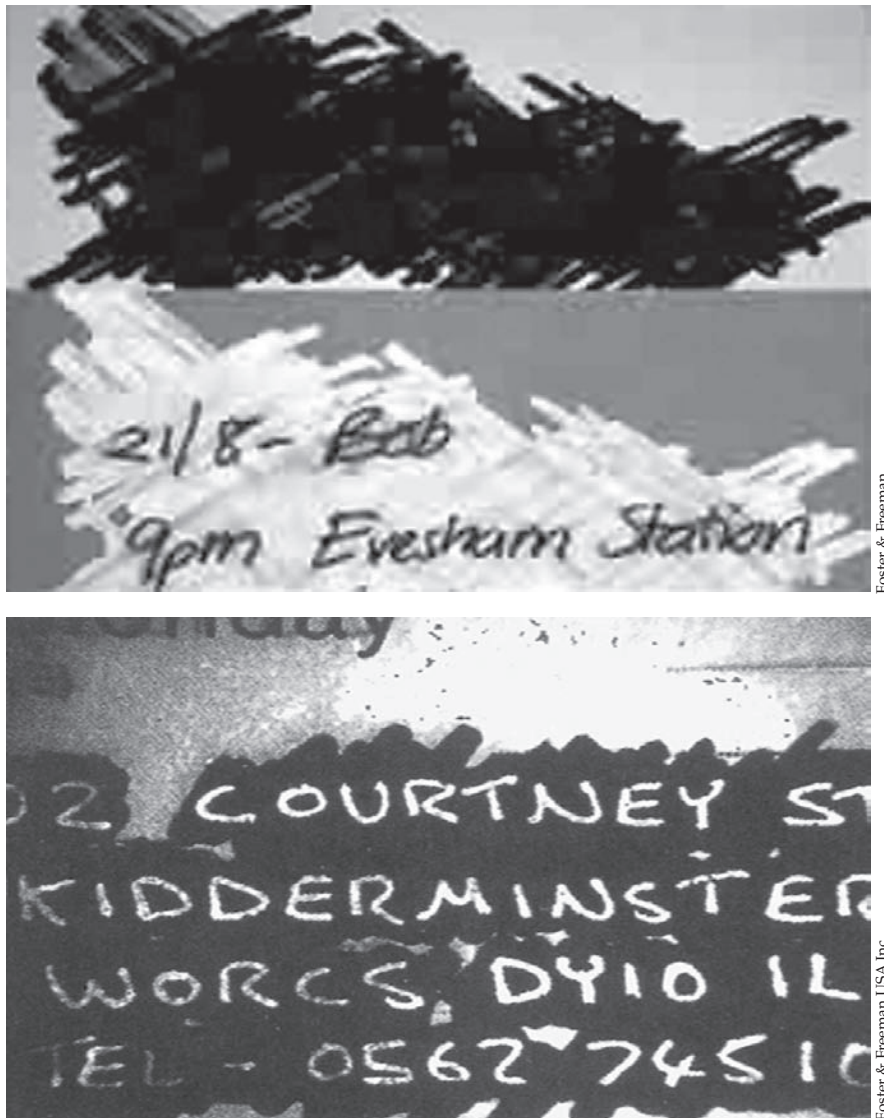 21/8 - Bob
9pm Evesham Station
Foster & Freeman
02 COURTNEY ST
KIDDERMINSTER
WORCS DY10 1L
TEL - 0562 74510
Foster & Freeman USA Inc